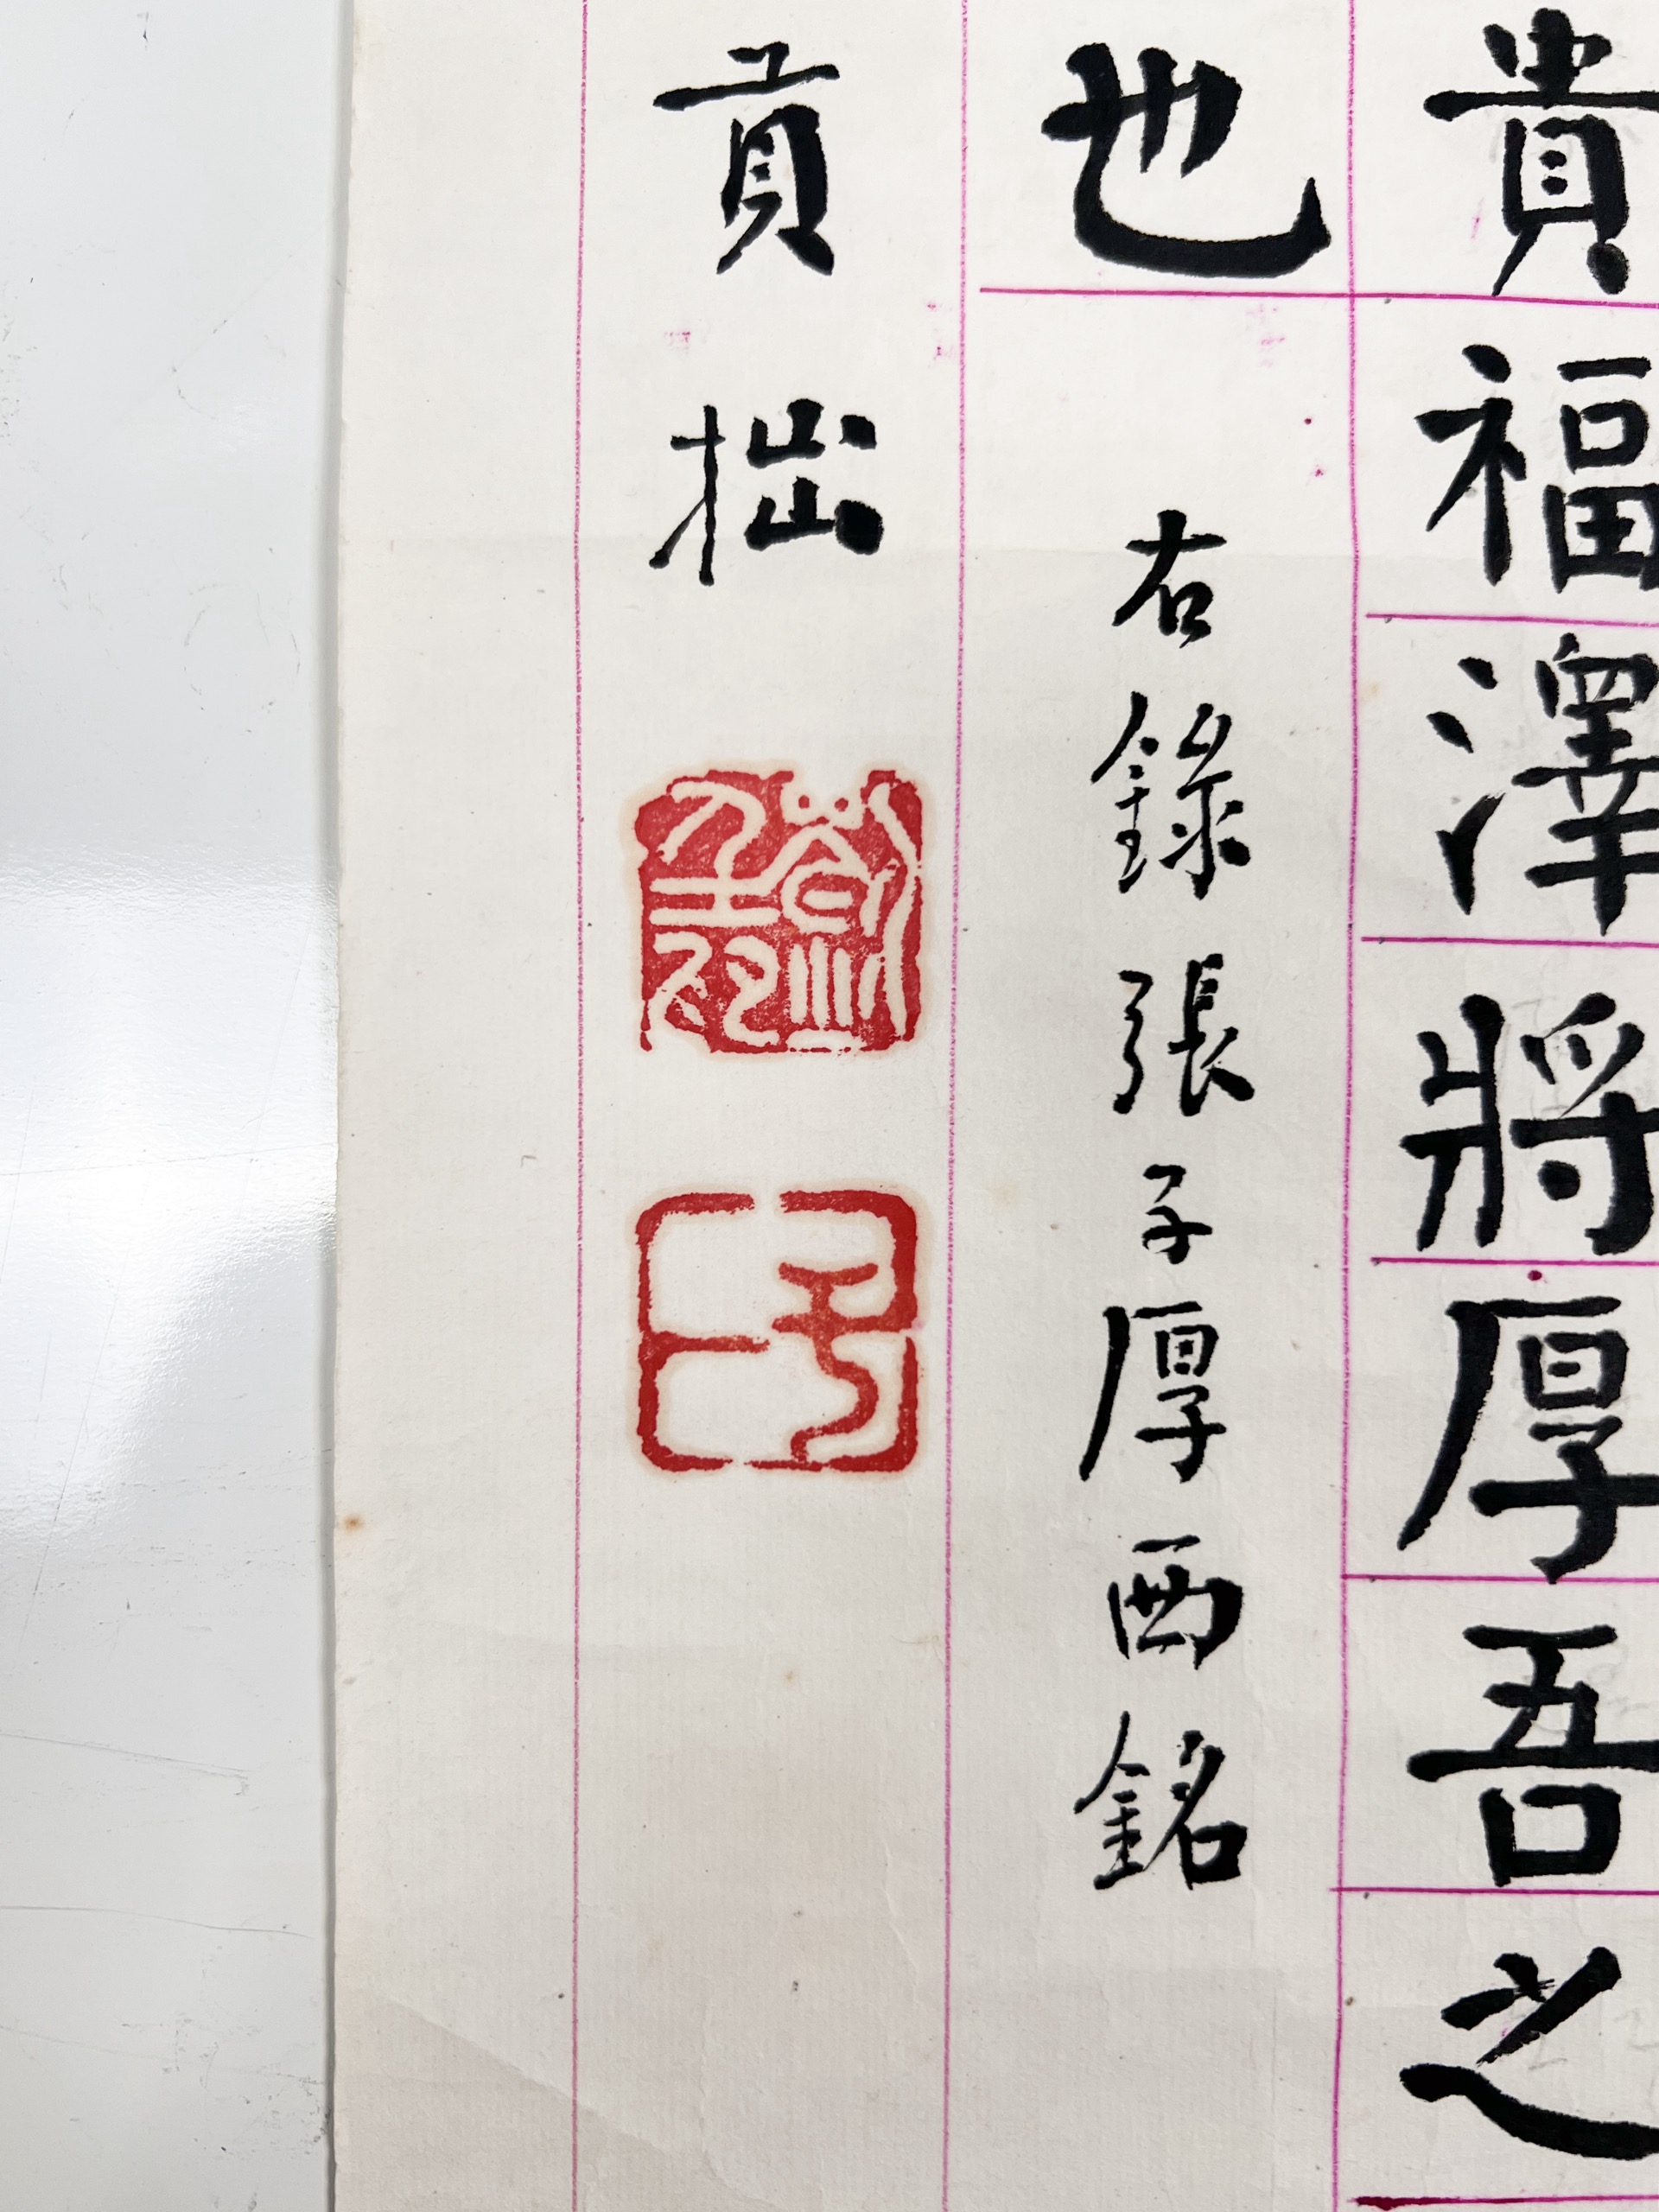 貴福澤將厚吾之
也 右錄張子厚西銘
貢拙